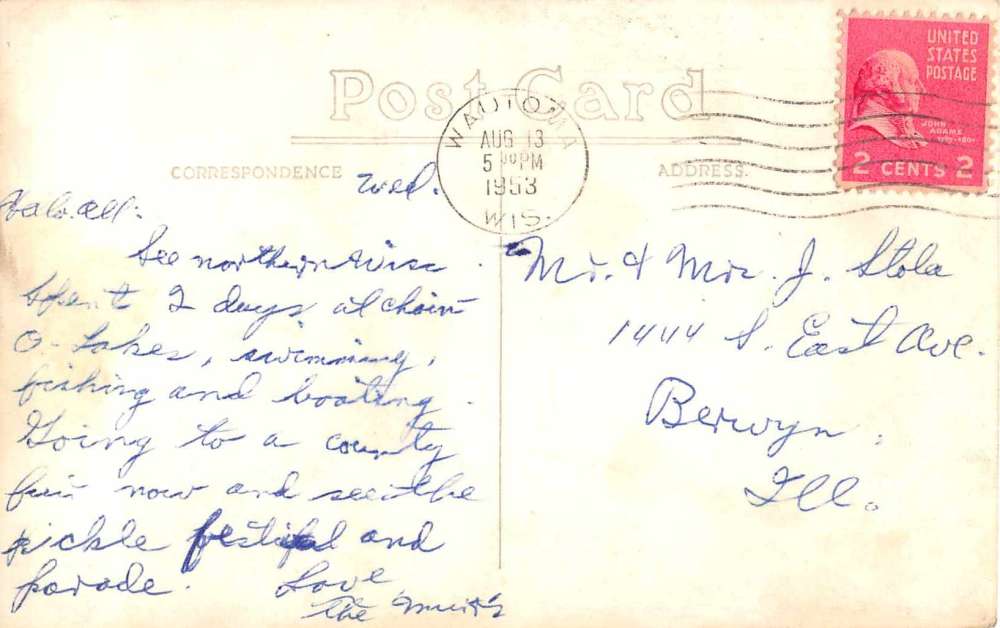 UNITED
STATES
POSTAGE
JOHN
ADAMS
2 CENTS 2
Post Card
WAUTOMA
AUG 13
5 PM
1953
WIS.
CORRESPONDENCE
ADDRESS.
Wed.
all.
See northern Wisc.
Spent 2 days at chain
O-Lakes, swimming,
fishing and boating.
Going to a county
fair now and see the
pickle festifal and
parade.
Love
The
Mr. & Mrs. J. Stola
1444 S. East Ave.
Berwyn,
Ill.